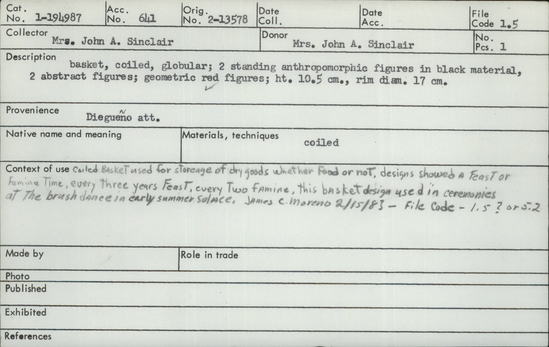 Cat. No. 1-194987 Acc. No. 641 Orig. No. 2-13578 Date Coll. Date Acc. File Code 1.5
Collector Mrs. John A. Sinclair Donor Mrs. John A. Sinclair No. Pcs. 1
Description basket, coiled, globular; 2 standing anthropomorphic figures in black material,
2 abstract figures; geometric red figures; ht. 10.5 cm., rim diam. 17 cm.
Provenience Diegueño att.
Native name and meaning Materials, techniques coiled
Context of use Coiled Basket used for storeage of dry goods whether Food or not, designs showed a Feast or
Famine Time, every three years Feast, every Two Famine, this basket design used in ceremonies
at The brush dance in early summer solace. James C. Moreno 2/15/83 - File Code - 1.5? or 5.2
Made by Role in trade
Photo
Published
Exhibited
References